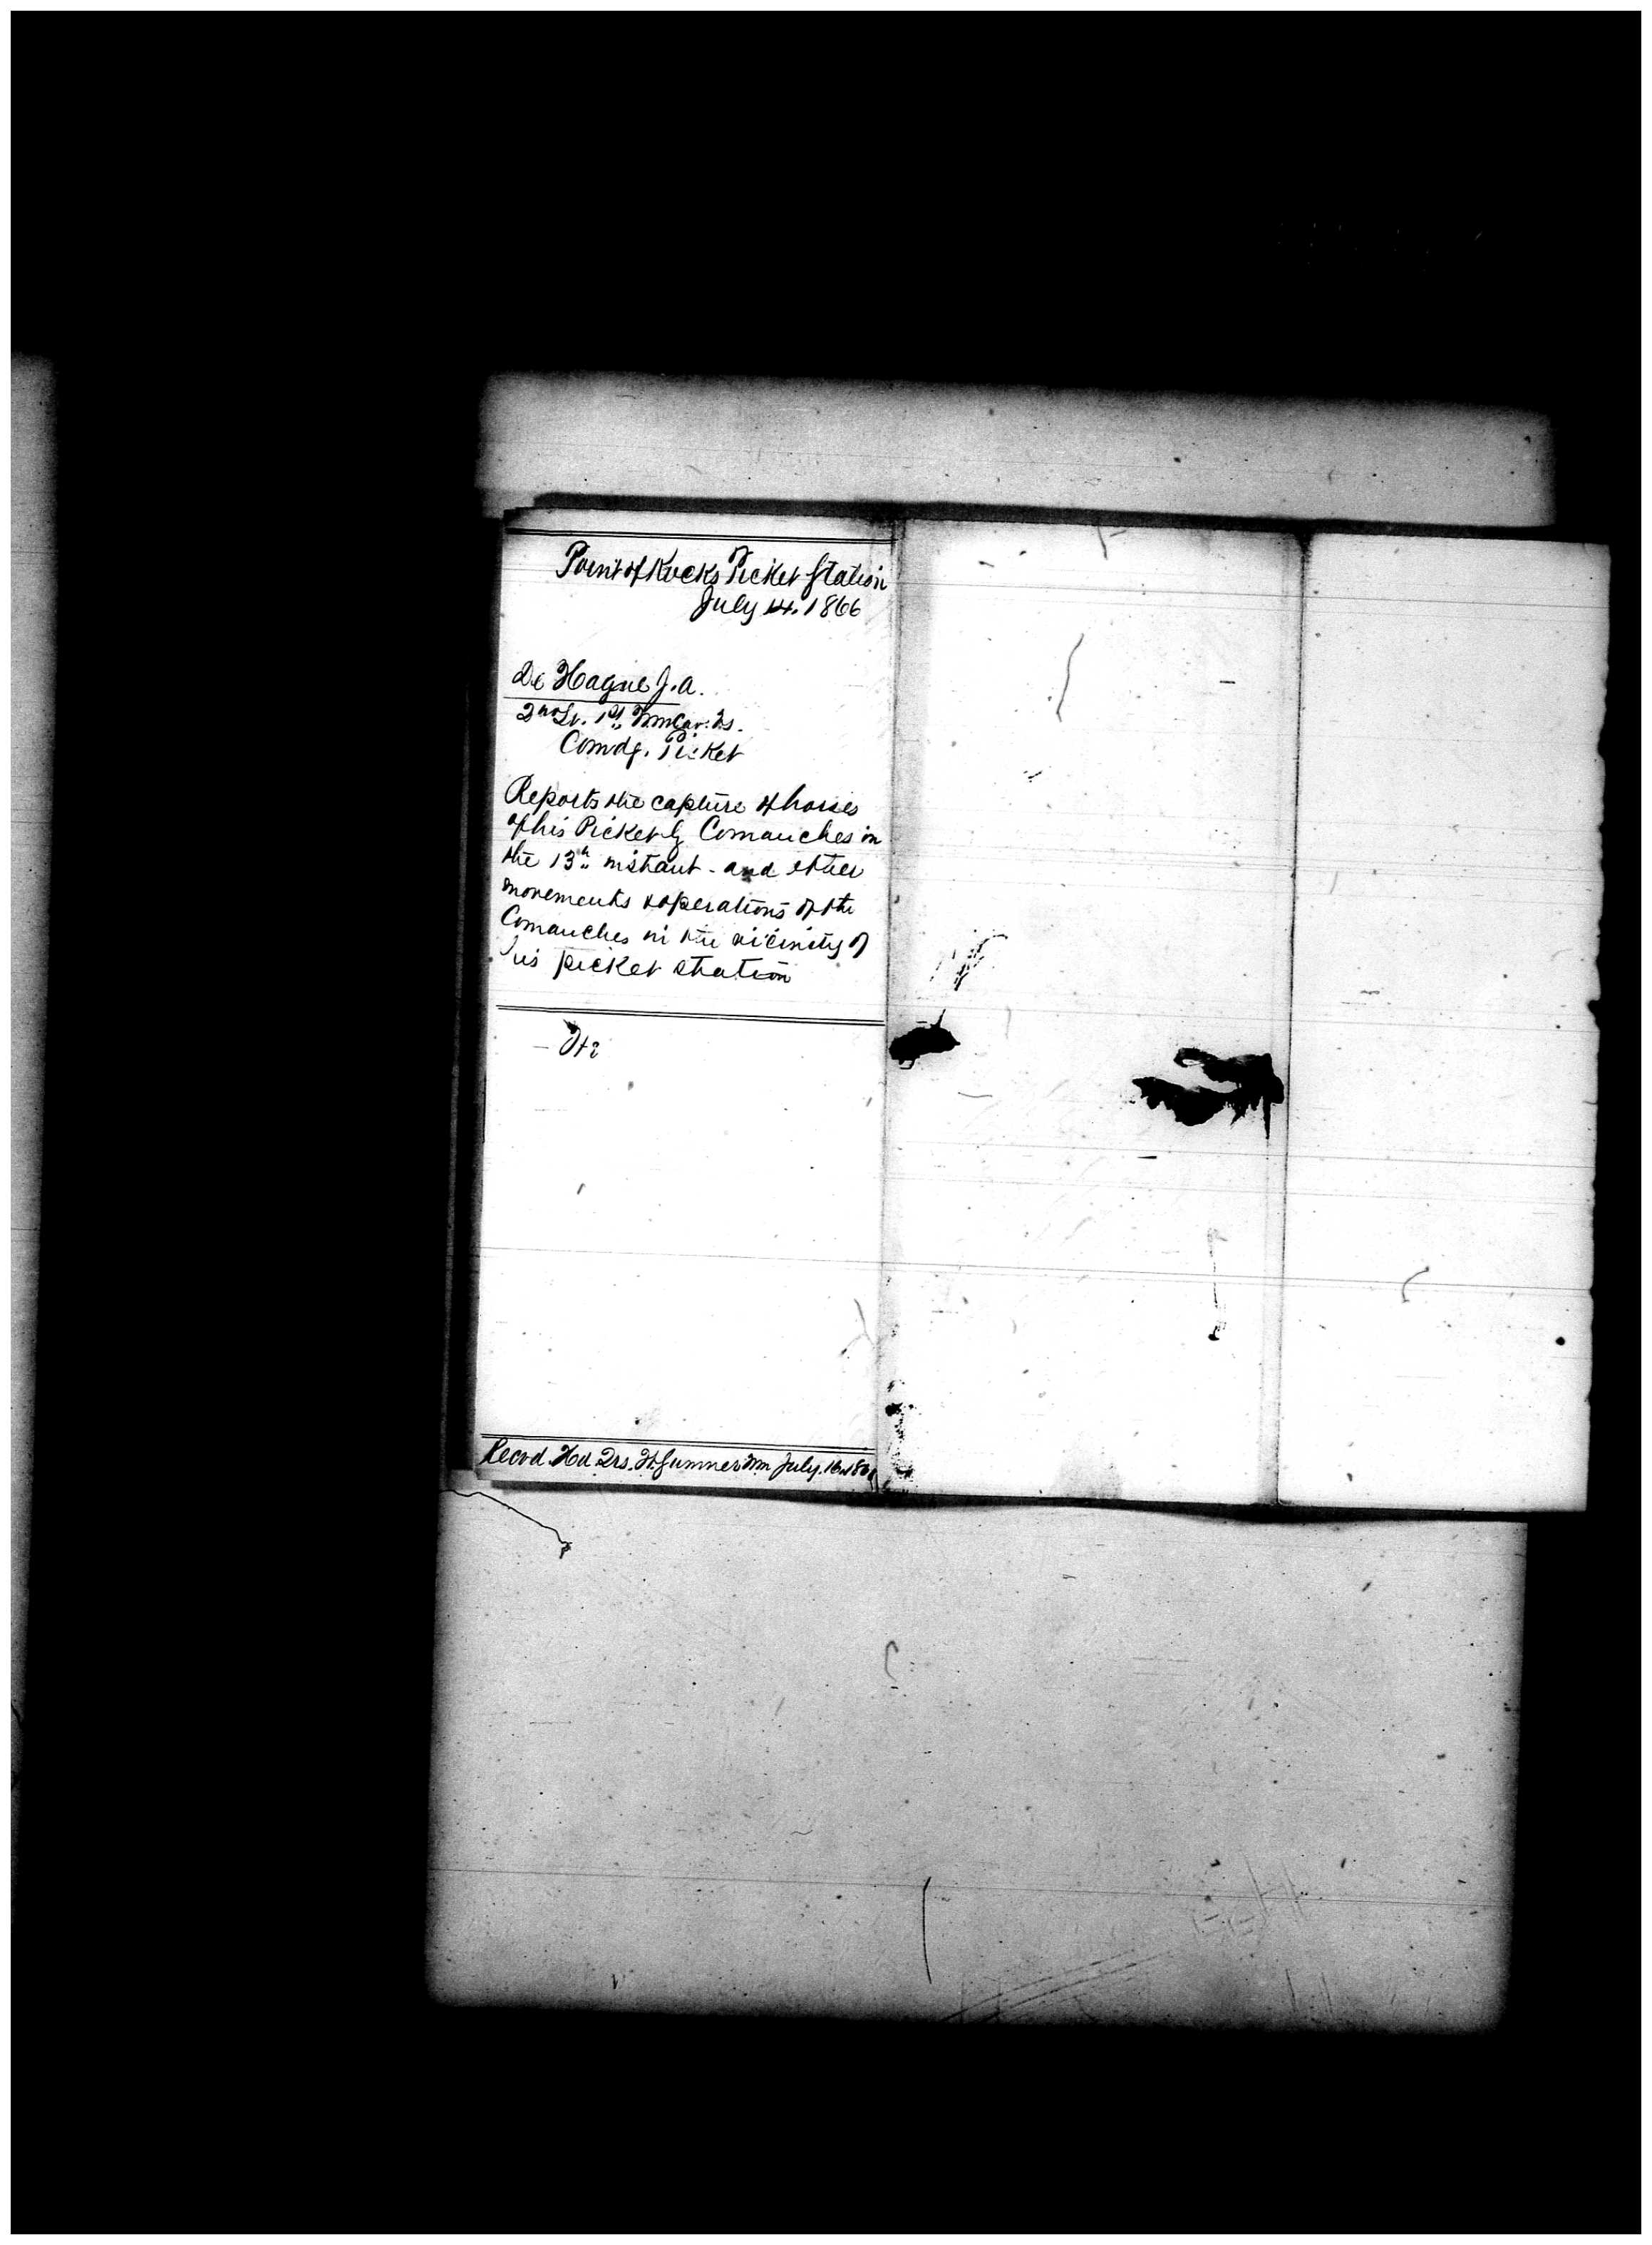 Point of Rocks Picket Station
July 14. 1866
De Hague J. A.
2nd Lt. 1st N.M. Cav. Vs.
Comdg. Picket
Reports the capture of horses
of his Picket by Comanches in
the 13th instant - and other
movements & operations of the
Comanches in the vicinity of
his picket station
Recvd. Hd. Qrs. Ft. Sumner N.M. July. 16. 186